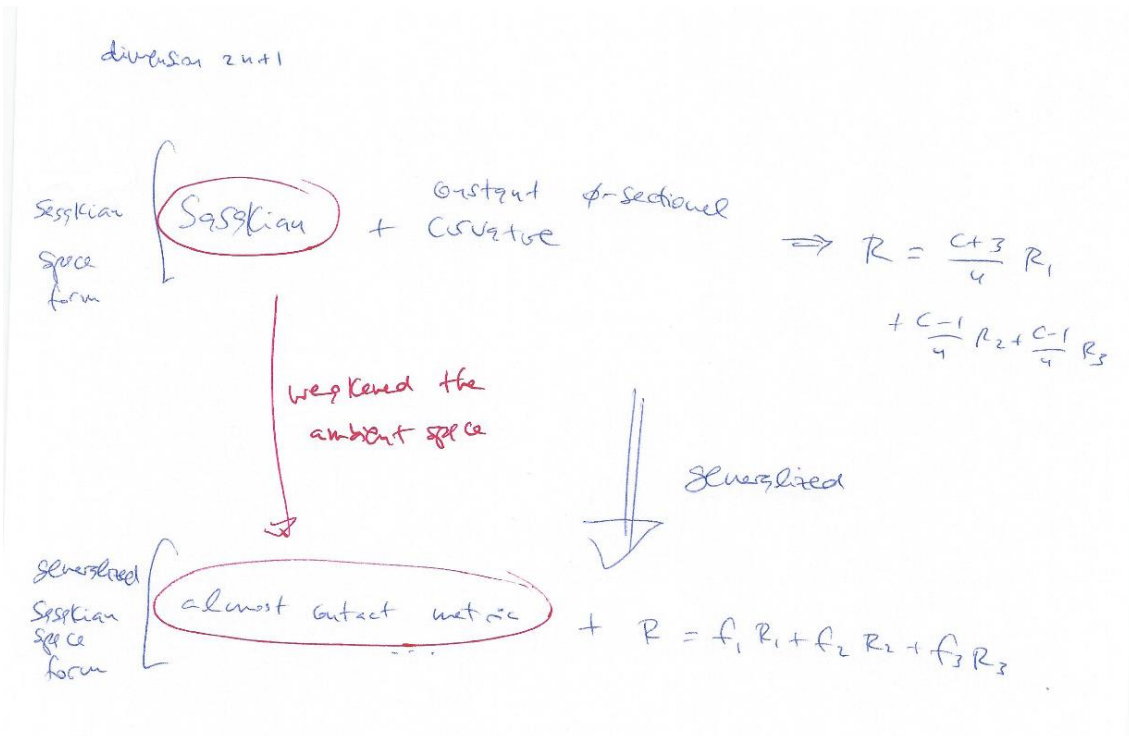 dimension 2n+1
Sasakian space form
Sasakian + constant φ-sectional curvature
⇒ R = \frac{c+3}{4} R_1
+ \frac{c-1}{4} R_2 + \frac{c-1}{4} R_3
weakened the
ambient space
generalized
generalized
Sasakian
space
form
almost contact metric + R = f_1 R_1 + f_2 R_2 + f_3 R_3